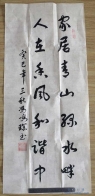 家居青山绿水畔
人在春风和谐中
癸巳年三秋